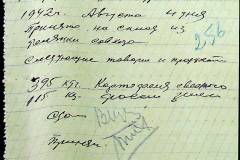 1942г. Августа 4 дня
Принято на склад из
совхоза
256
Следующие товары и продукты
395 кгг. Картофеля сводного
115 кг.
Сдал
Принял